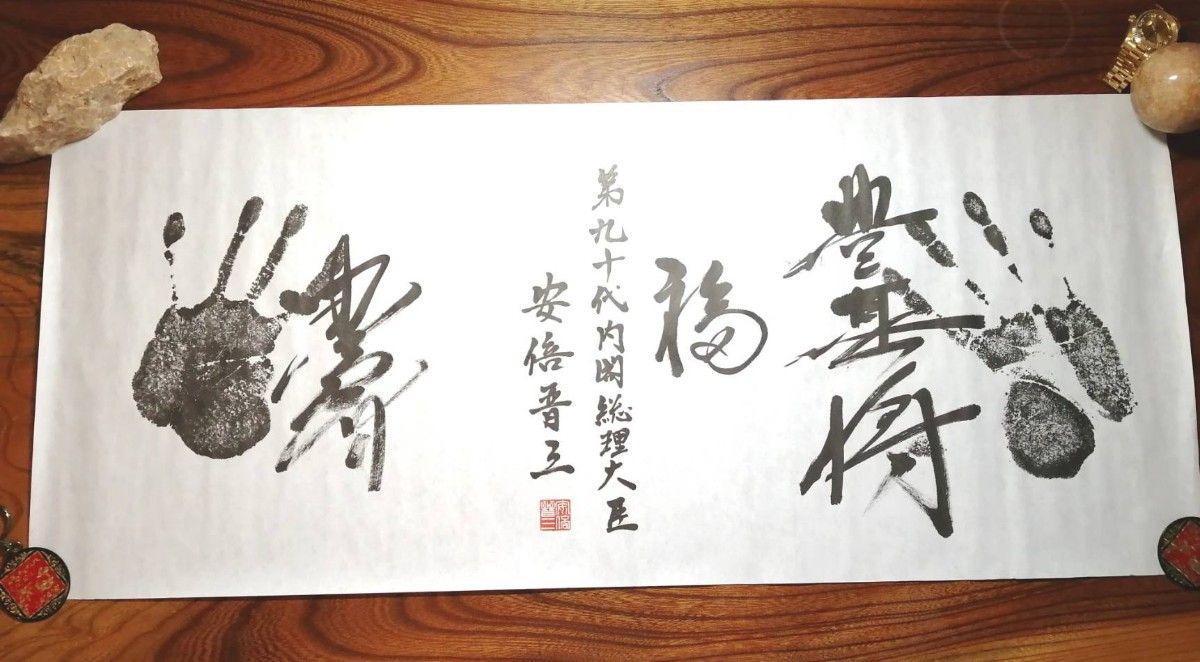 豊真将
福
第九十代内閣総理大臣
安倍晋三
安倍晋三